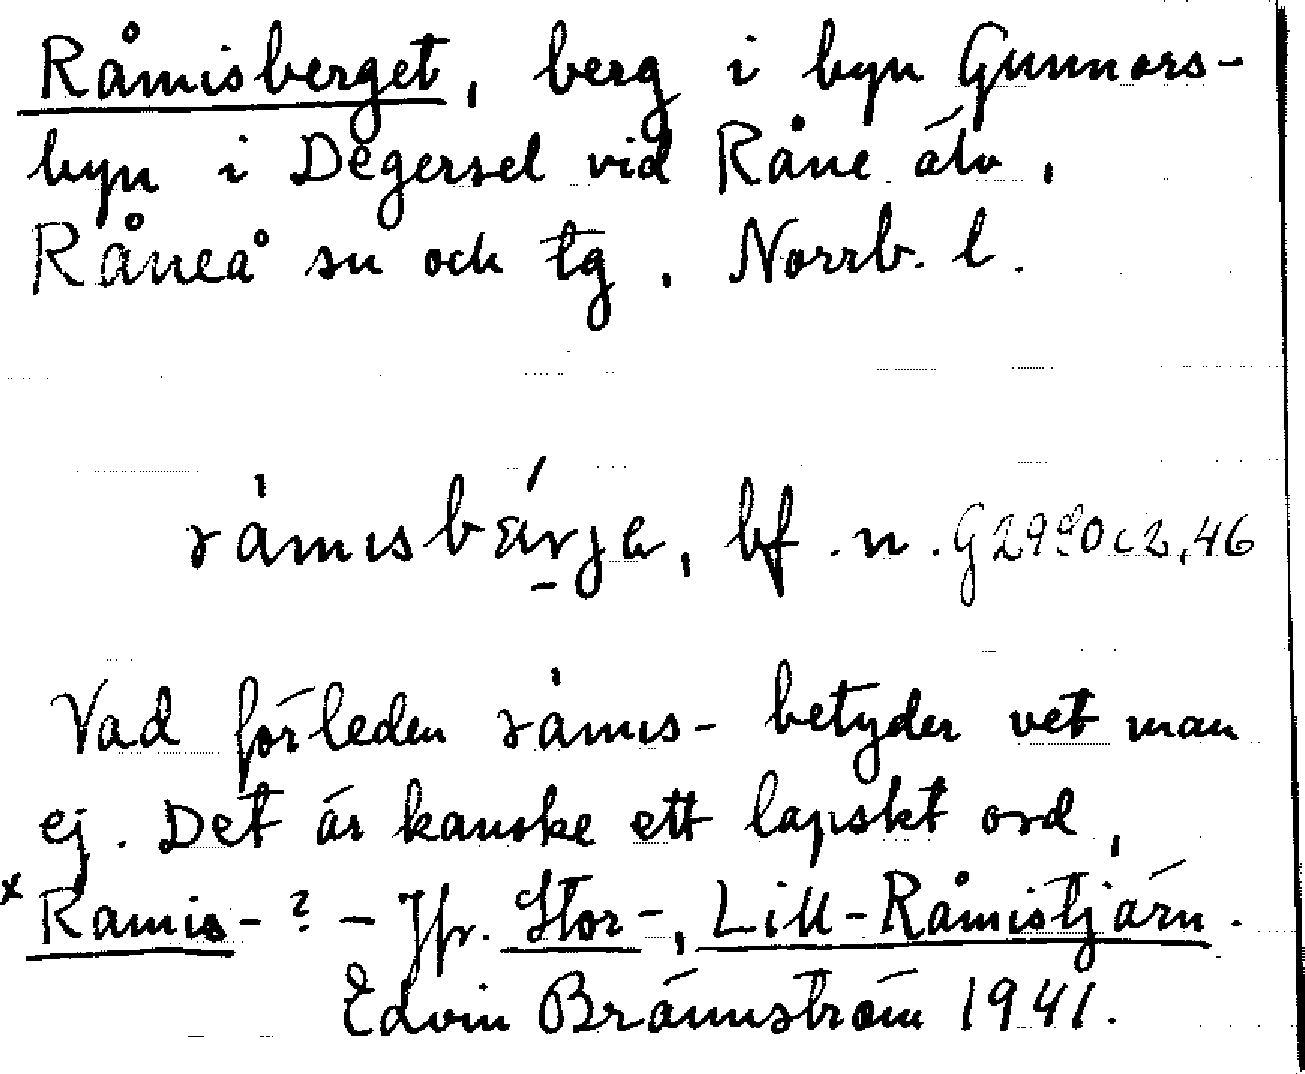 Råmisberget, berg i byn Gunnars-
byn i Degersel vid Råne älv,
Råneå sn och tg, Norrb. l.
råmɩsbä́rjə, bf. n. G2990c2,46
Vad förleden råmɩs- betyder vet man
ej. Det är kanske ett lapskt ord,
×Ramis-? – Jfr. Stor-, Lill-Råmistjärn.
Edvin Brännström 1941.